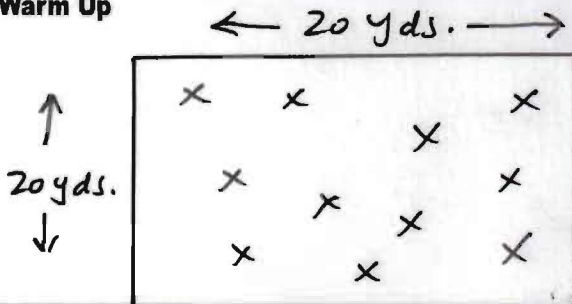 Warm Up
← 20 yds. →
20 yds.
x x x
x
x x
x x
x x
x